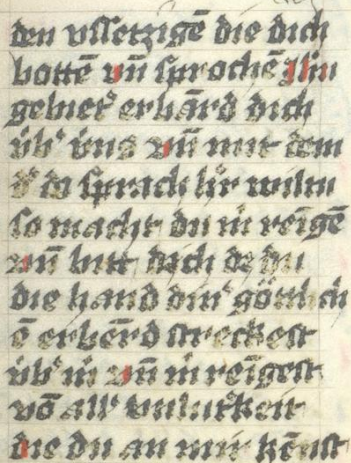 den vssetzigē die dich
bottē vn̄ sprochē Jh̄u
gebiet' erbārd dich
üb' üns vn̄ mit dem
d' do sprach h'r wiltu
so macht du m̄ reīgē
vn̄ bitt dich dz du
die hand din' göttlich
ē erbērd streckest
üb' m̄ vn̄ m̄ reīgest
vō all' vnlutkeit
die du an mir kēnst